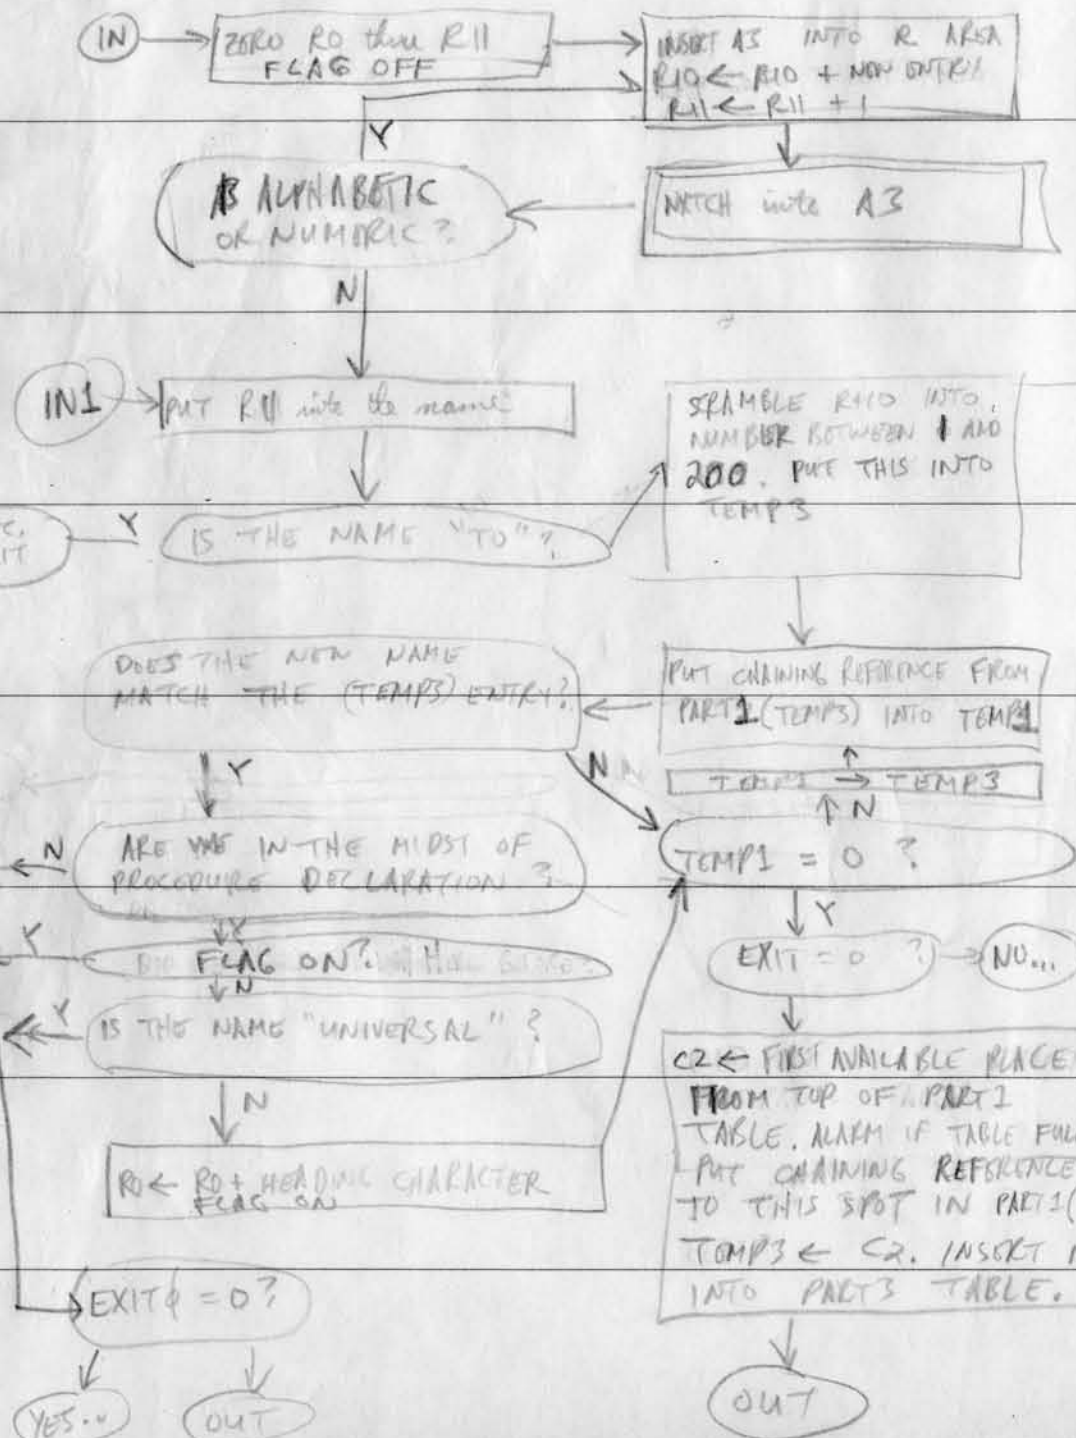 IN
ZERO R0 thru R11
FLAG OFF
INSERT A3 INTO R AREA
R10 ← R10 + NON ENTRY
R11 ← R11 + 1
Y
A3 ALPHABETIC
OR NUMERIC?
NXTCH into A3
N
IN1
PUT R11 into the name
SCRAMBLE R110 INTO
NUMBER BETWEEN 1 AND
200. PUT THIS INTO
TEMP3
Y
IS THE NAME "TO"?
DOES THE NEW NAME
MATCH THE (TEMP3) ENTRY?
PUT CHAINING REFERENCE FROM
PART1(TEMP3) INTO TEMP1
Y
N
TEMP1 → TEMP3
N
N
ARE WE IN THE MIDST OF
PROCEDURE DECLARATION?
TEMP1 = 0 ?
Y
Y
Y
FLAG ON?
EXIT = 0 ?
NO...
N
Y
IS THE NAME "UNIVERSAL" ?
N
C2 ← FIRST AVAILABLE PLACE
FROM TOP OF PART1
TABLE. ALARM IF TABLE FULL
PUT CHAINING REFERENCE
TO THIS SPOT IN PART1(
TEMP3 ← C2. INSERT
INTO PART3 TABLE.
R0 ← R0 + HEADING CHARACTER
FLAG ON
EXITϕ = 0?
YES...
OUT
OUT